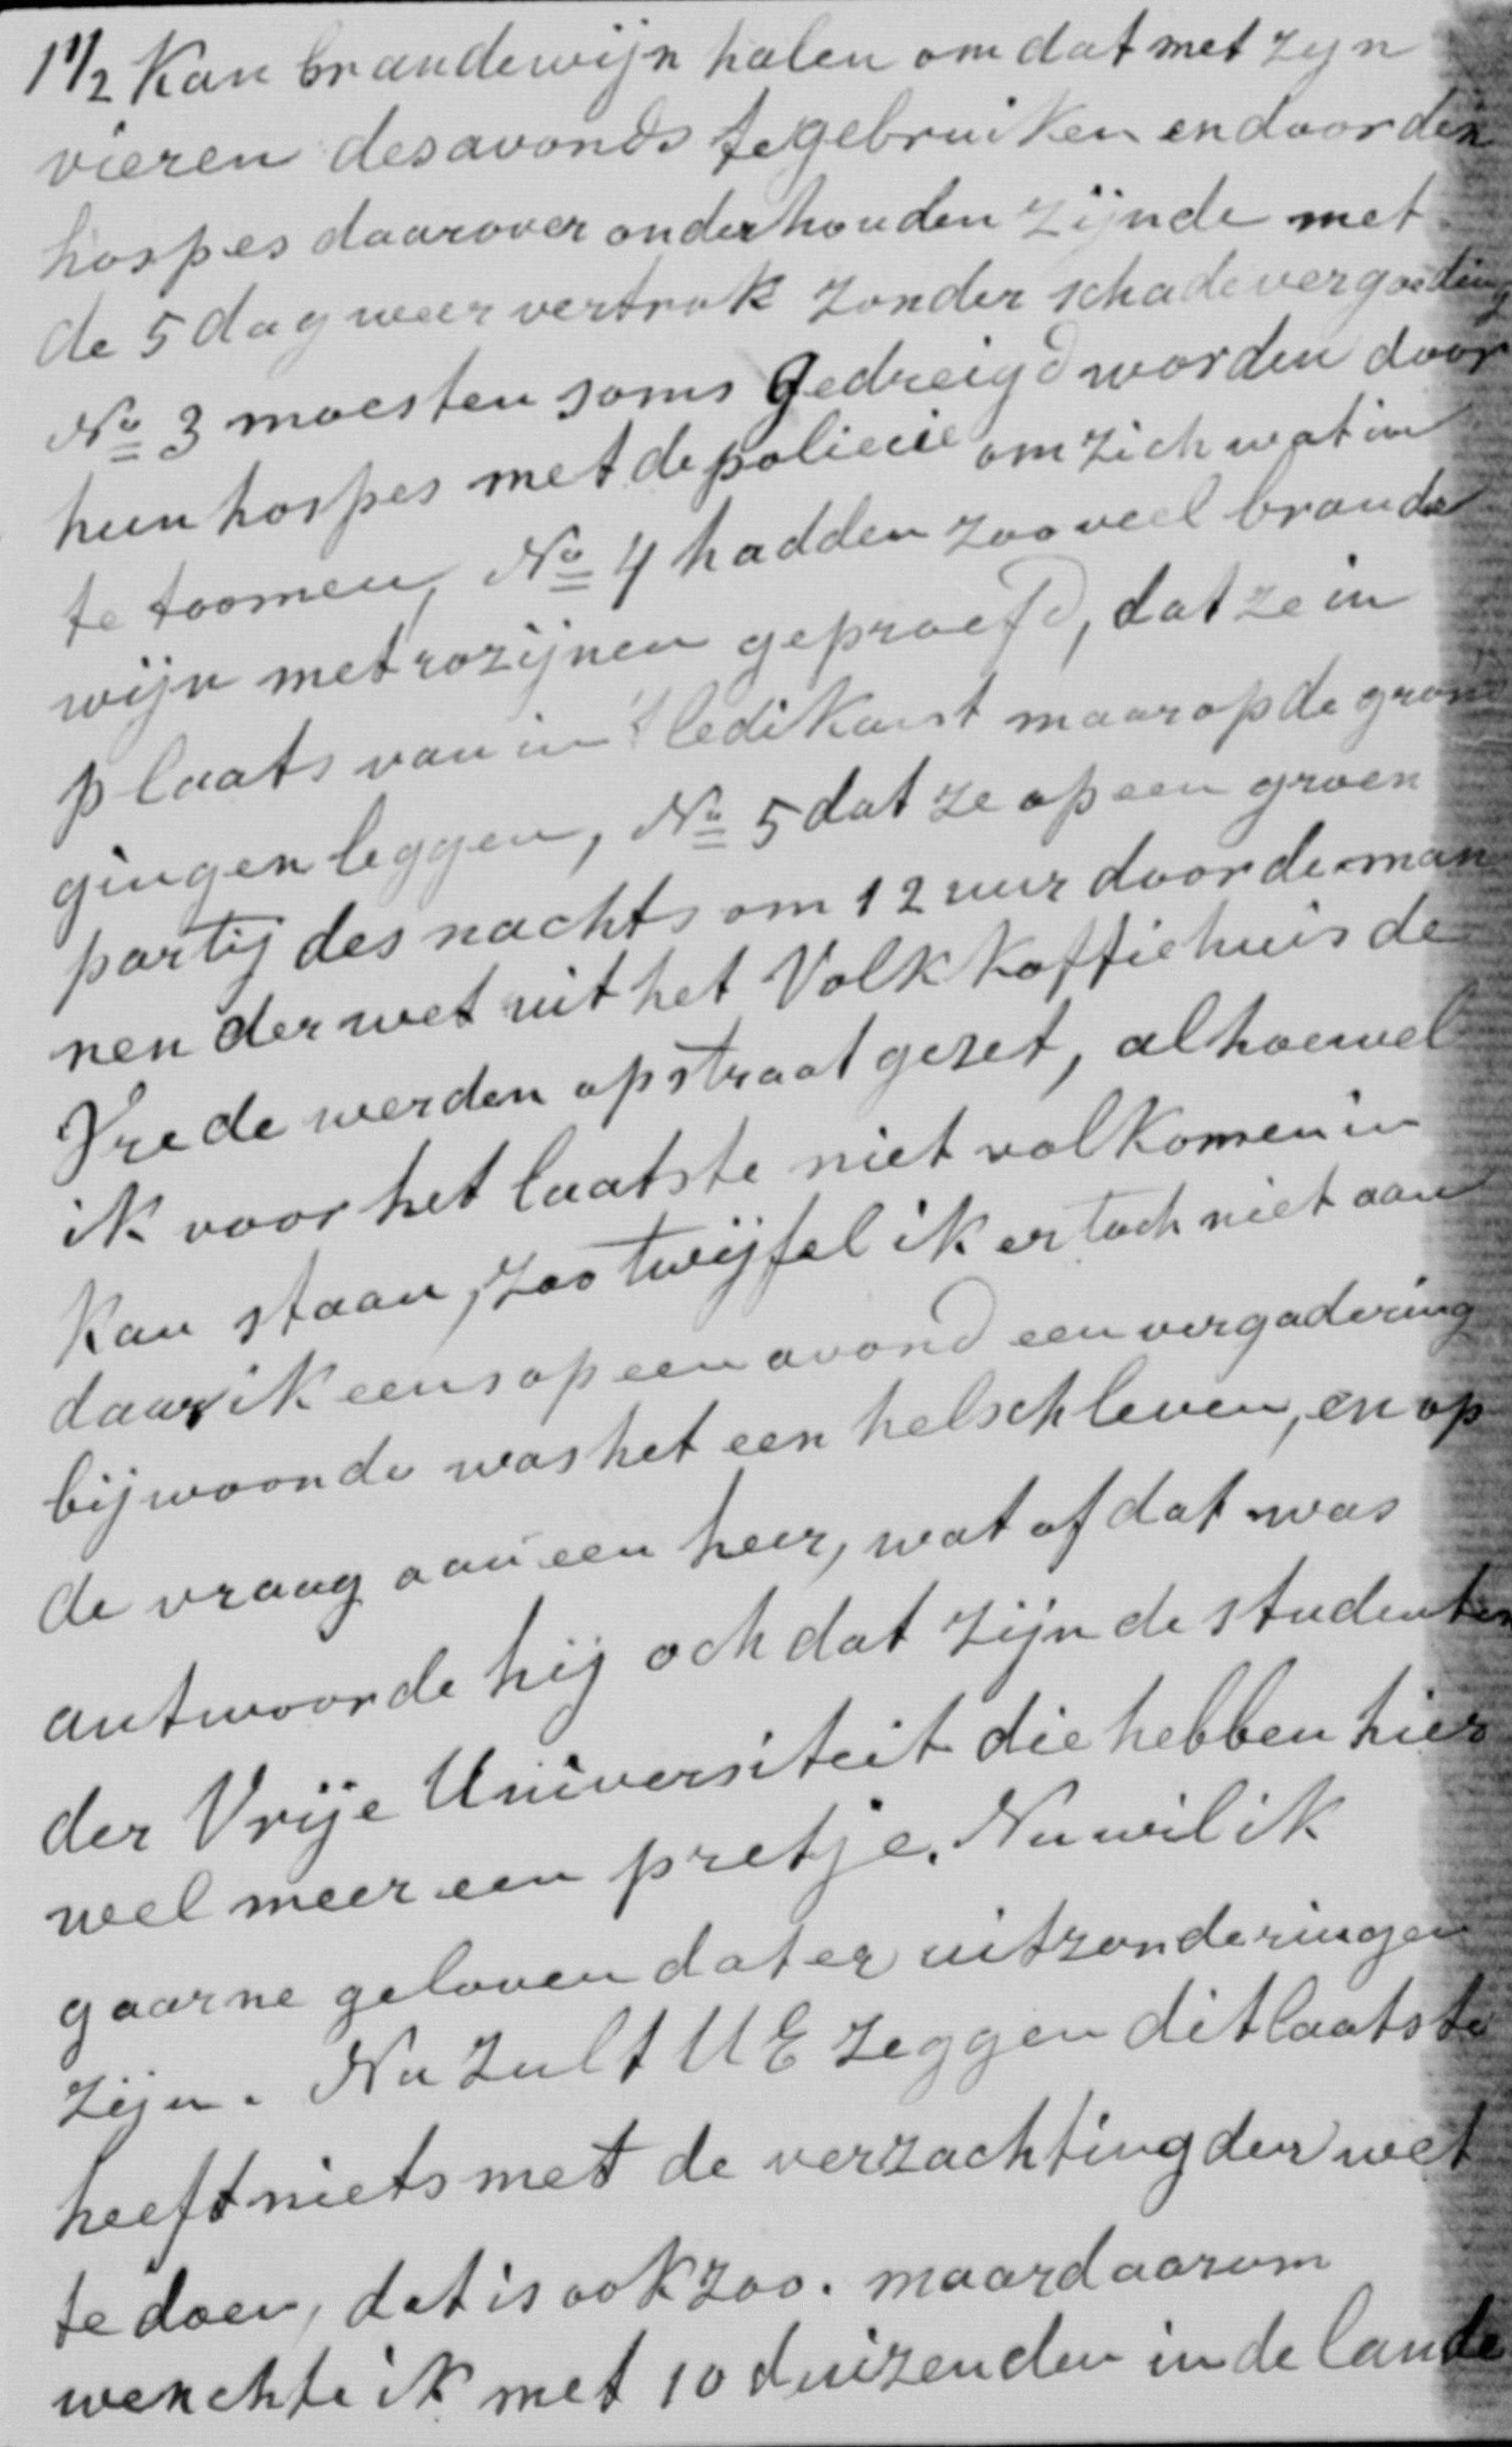 1 1/2 Kan brandewijn halen om dat met zijn
vieren des avonds te gebruiken en door den
hospes daarover onderhouden zijnde met
de 5 dag weer vertrok zonder schadevergoeding
No 3 moesten soms gedreigd worden door
hun hospes met de policie om zich wat in
te toomen, No 4 hadden zoo veel brande
wijn met rozijnen geproefd, dat ze in
plaats van in 't ledikant maar op de grond
gingen leggen, No 5 dat ze op een groen
partij des nachts om 12 uur door de man
nen der wet uit het Volk Koffiehuis de
Vrede werden op straat gezet, alhoewel
ik voor het laatste niet volkomen in
kan staan, zoo twijfel ik er toch niet aan
daar ik eens op een avond een vergadering
bijwoonde was het een helsch leven, en op
de vraag aan een heer, wat of dat was
antwoorde hij och dat zijn de studenten
der Vrije Universiteit die hebben hier
wel meer een pretje. Nu wil ik
gaarne geloven dat er uitzonderingen
zijn. Nu zult UE zeggen dit laatste
heeft niets met de verzachting der wet
te doen, dat is ook zoo. maar daarom
wenchte ik met 10 duizenden in de lande